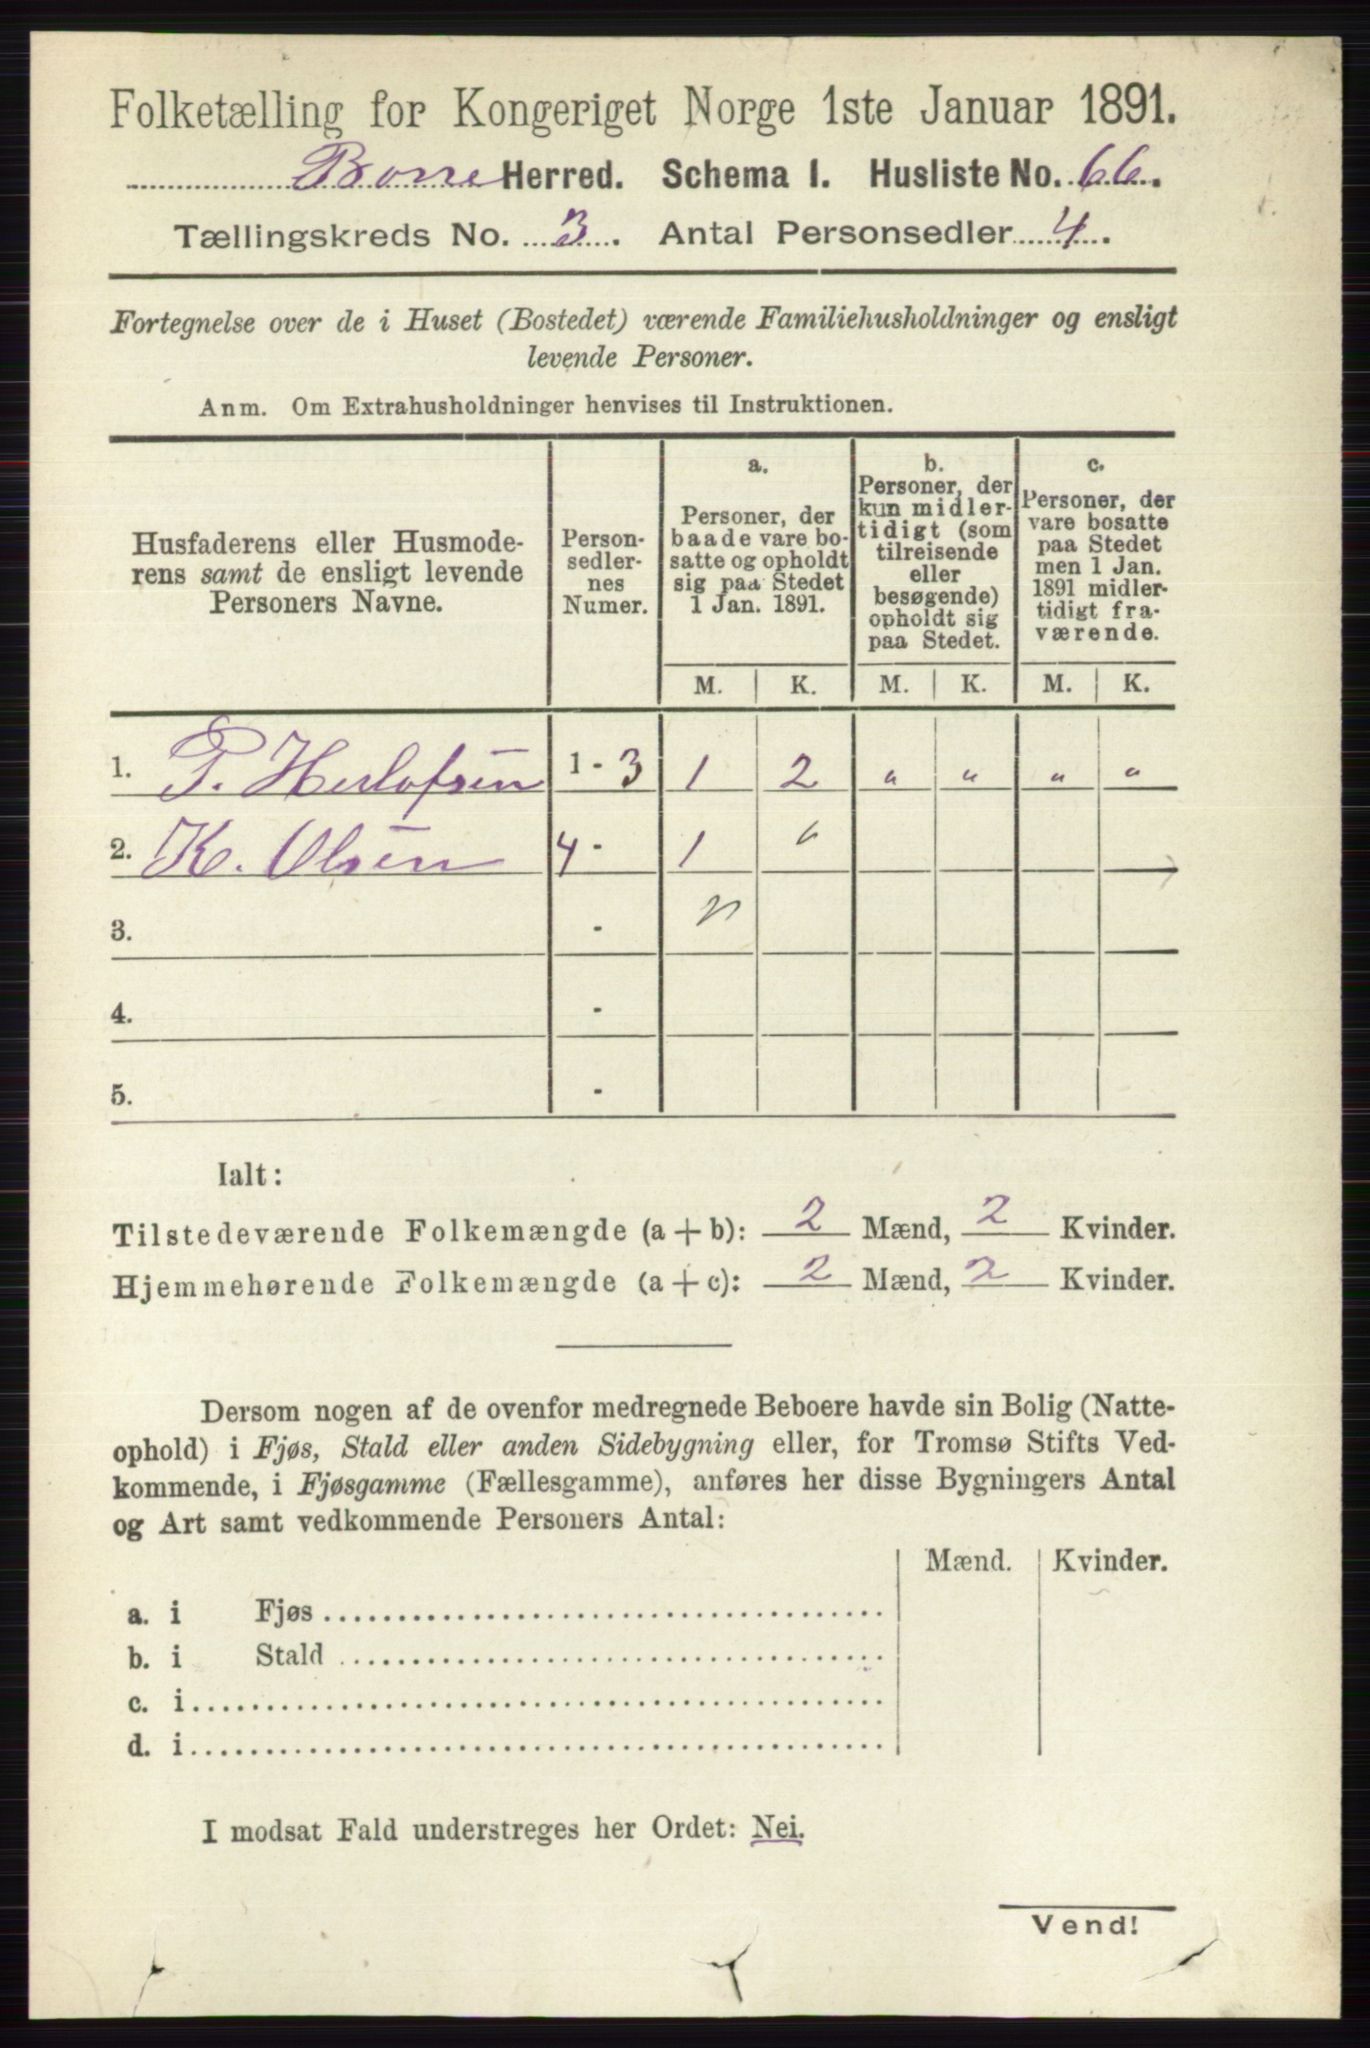 Folketælling for Kongeriget Norge 1ste Januar 1891.
Borre Herred. Schema I. Husliste No. 66.
Tællingskreds No. 3. Antal Personsedler 4.
Fortegnelse over de i Huset (Bostedet) værende Familiehusholdninger og ensligt
levende Personer.
Anm. Om Extrahusholdninger henvises til Instruktionen.
Husfaderens eller Husmode-
rens samt de ensligt levende
Personers Navne.
Person-
sedler-
nes
Numer.
a.
Personer, der
baade vare bo-
satte og opholdt
sig paa Stedet
1 Jan. 1891.
b.
Personer, der
kun midler-
tidigt (som
tilreisende
eller
besøgende)
opholdt sig
paa Stedet.
c.
Personer, der
vare bosatte
paa Stedet
men 1 Jan.
1891 midler-
tidigt fra-
værende.
M. K. M. K. M. K.
1. P. Herlofsen 1 - 3 1 2 " " " "
2. K. Olsen 4 - 1 "
3. -
4. -
5. -
Ialt:
Tilstedeværende Folkemængde (a + b): 2 Mænd, 2 Kvinder.
Hjemmehørende Folkemængde (a + c): 2 Mænd, 2 Kvinder.
Dersom nogen af de ovenfor medregnede Beboere havde sin Bolig (Natte-
ophold) i Fjøs, Stald eller anden Sidebygning eller, for Tromsø Stifts Ved-
kommende, i Fjøsgamme (Fællesgamme), anføres her disse Bygningers Antal
og Art samt vedkommende Personers Antal:
Mænd. Kvinder.
a. i Fjøs
b. i Stald
c. i
d. i
I modsat Fald understreges her Ordet: Nei.
Vend!